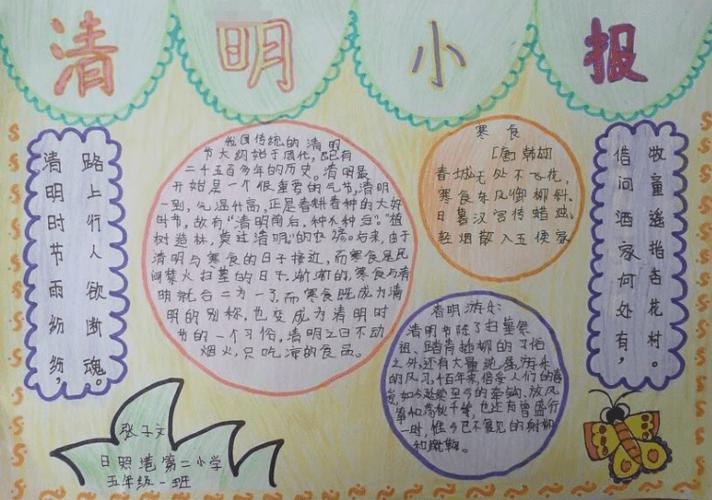 清明小报
清明时节雨纷纷，
路上行人欲断魂。
我国传统的清明
节大约始于周代，已有
二千五百多年的历史。清明最
开始是一个很重要的气节，清明
一到，气温升高，正是春耕春种的大好
时节，故有“清明前后，种瓜种豆”。“植
树造林，莫过清明”的农谚。后来，由于
清明与寒食的日子接近，而寒食是民
间禁火扫墓的日子，渐渐的，寒食与清
明就合二为一了，而寒食既成为清
明的别称，也变成为清明时
节的一个习俗，清明之日不动
烟火，只吃凉的食品。
寒食
[唐]韩翃
春城无处不飞花，
寒食东风御柳斜。
日暮汉宫传蜡烛，
轻烟散入五侯家
清明游乐
清明节除了扫墓祭
祖、踏青插柳的习俗
之外，还有大量游乐
的风习，千百年来，倍受人们的喜
爱，如今延续至今的牵钩、放风
筝和荡秋千等，也还有曾盛行
一时，惟今已不复见的射柳
和蹴鞠。
借问酒家何处有，
牧童遥指杏花村。
张子文
日照港第二小学
五年级一班